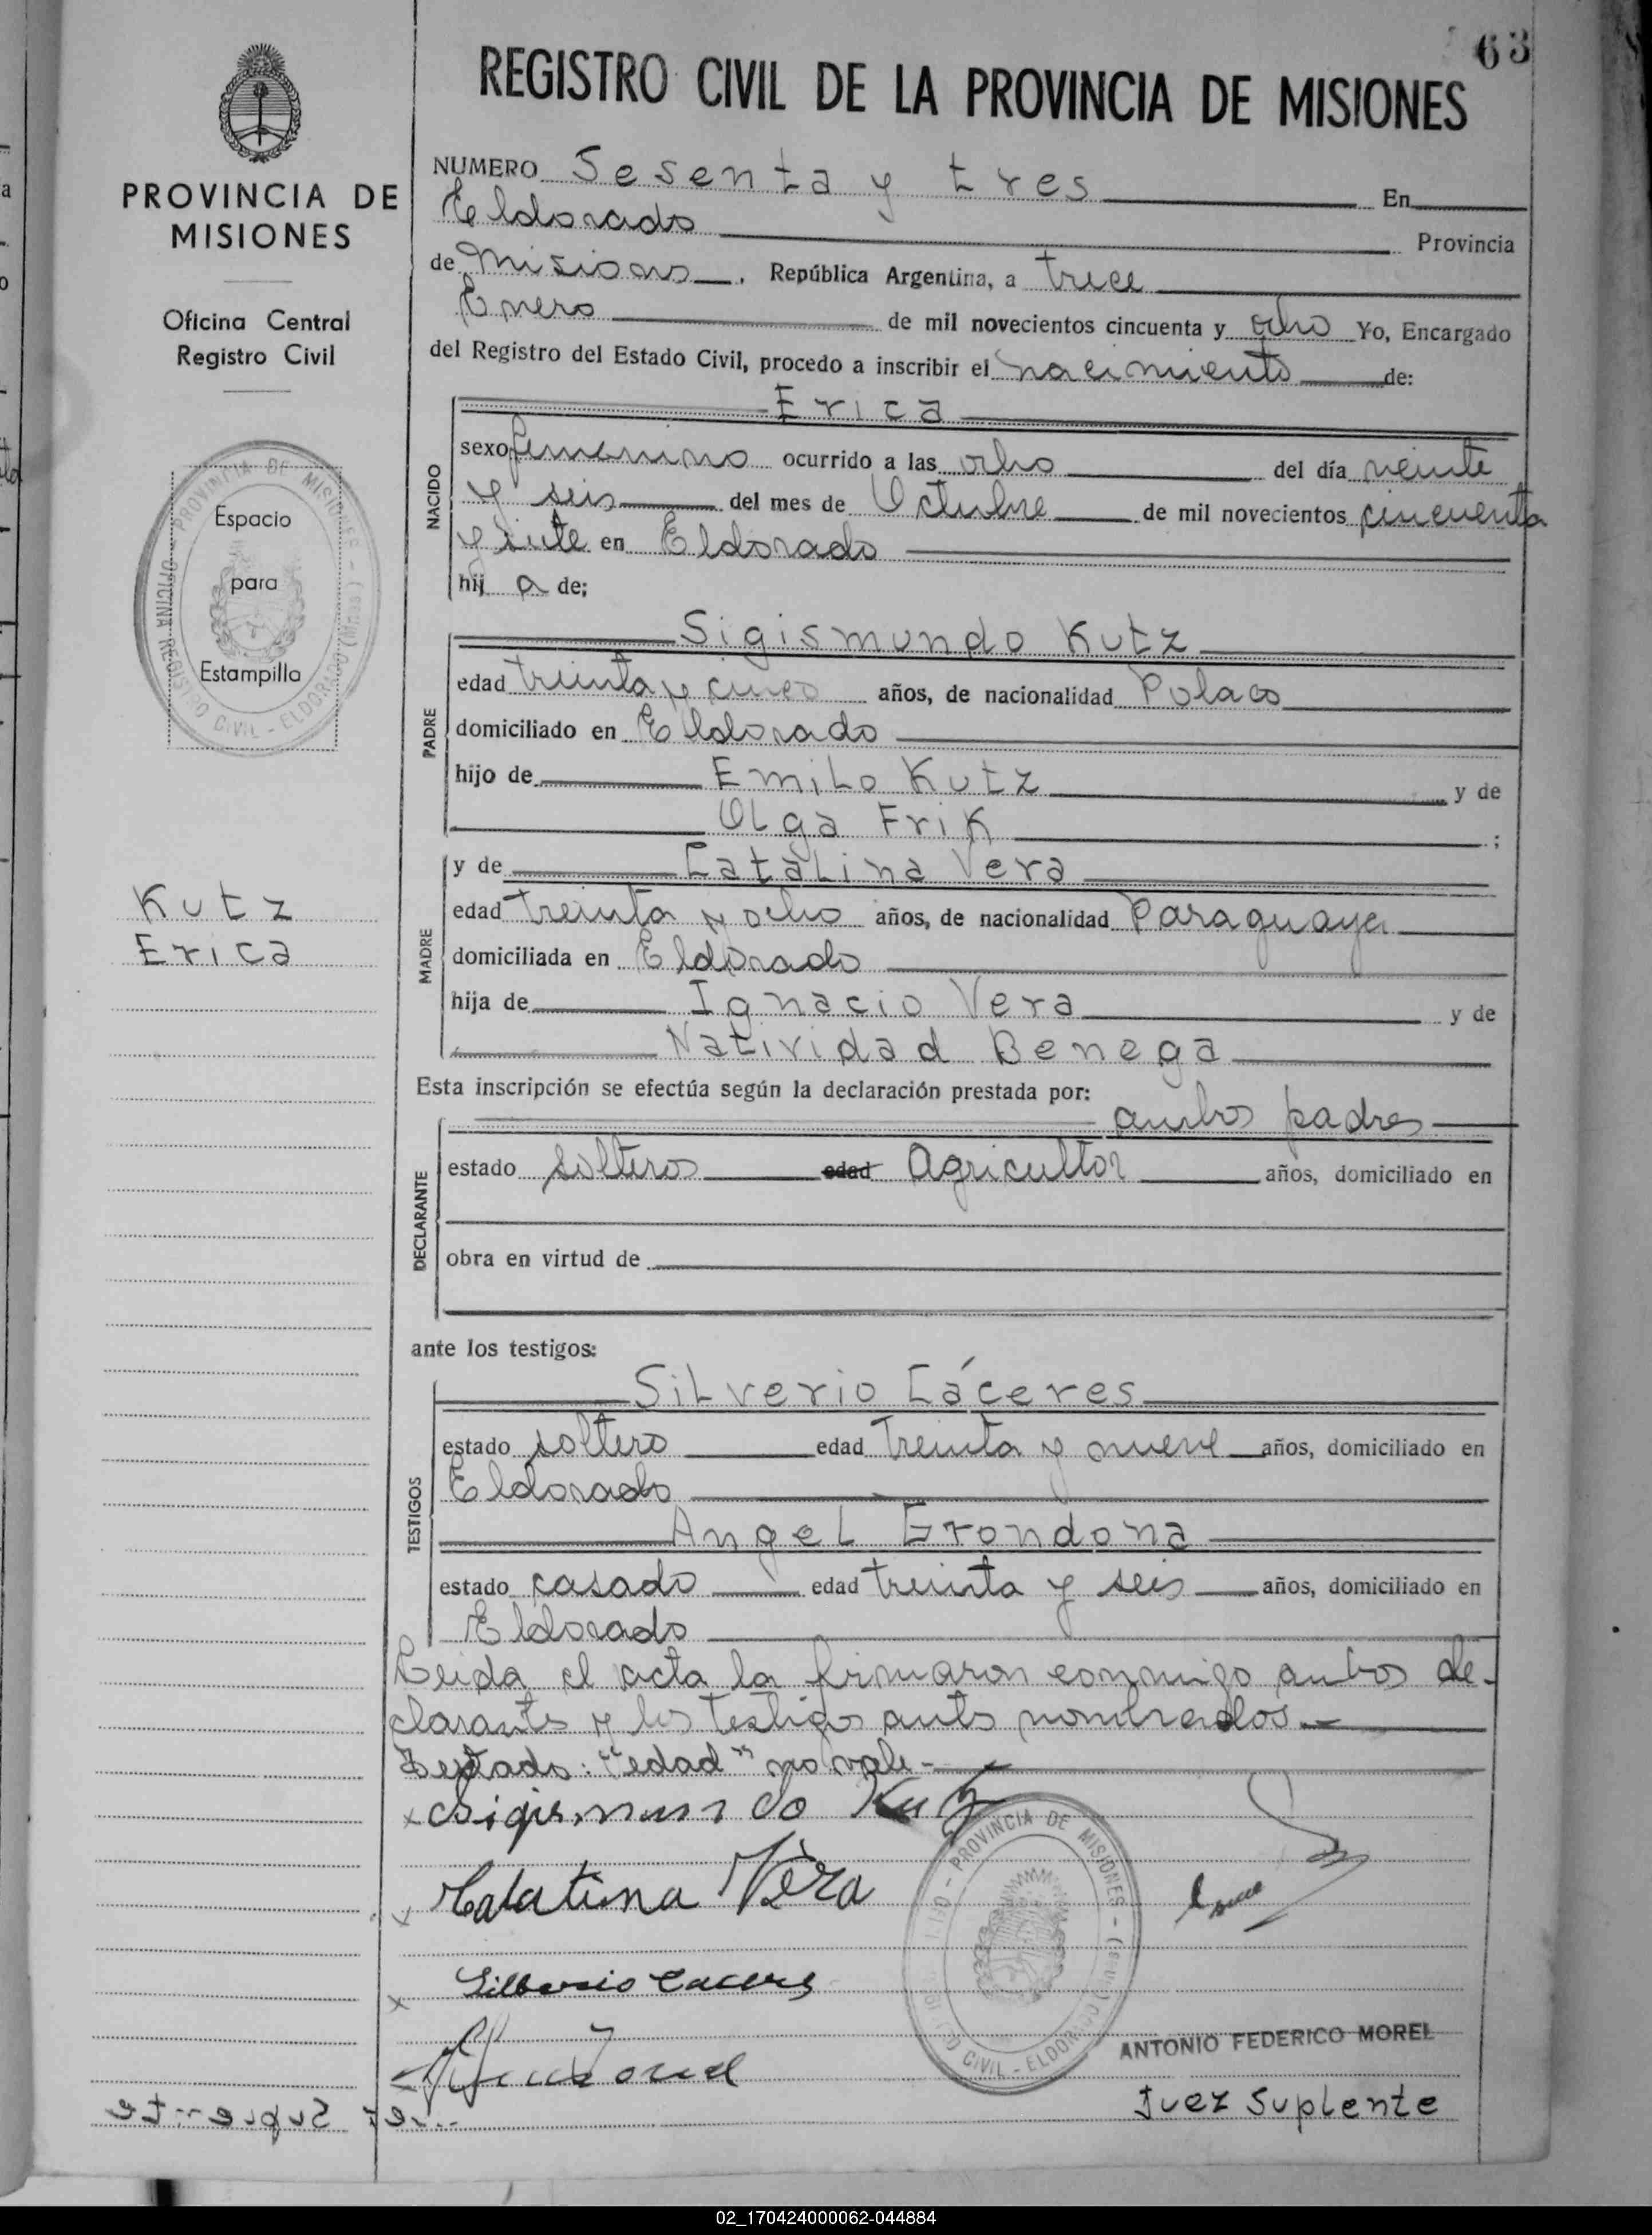 63
REGISTRO CIVIL DE LA PROVINCIA DE MISIONES
PROVINCIA DE
MISIONES
Oficina Central
Registro Civil
PROVINCIA DE MISIONES - OFICINA REGISTRO CIVIL - ELDORADO (Mnes.)
Espacio
para
Estampilla
Kutz
Erica
NUMERO Sesenta y tres En
Eldorado Provincia
de Misiones, República Argentina, a trece
Enero de mil novecientos cincuenta y ocho Yo, Encargado
del Registro del Estado Civil, procedo a inscribir el nacimiento de:
NACIDO
Erica
sexo femenino ocurrido a las ocho del día veinte
y seis del mes de Octubre de mil novecientos cincuenta
y siete en Eldorado
hij a de;
PADRE
Sigismundo Kutz
edad treinta y cinco años, de nacionalidad Polaco
domiciliado en Eldorado
hijo de Emilo Kutz y de
Olga Frik ;
MADRE
y de Catalina Vera
edad treinta y ocho años, de nacionalidad Paraguaya
domiciliada en Eldorado
hija de Ignacio Vera y de
Natividad Benega
Esta inscripción se efectúa según la declaración prestada por:
DECLARANTE
ambos padres
estado solteros edad Agricultor años, domiciliado en
obra en virtud de
ante los testigos:
TESTIGOS
Silverio Cáceres
estado soltero edad treinta y nueve años, domiciliado en
Eldorado
Angel Grondona
estado casado edad treinta y seis años, domiciliado en
Eldorado
Leida el acta la firmaron conmigo ambos de-
clarantes y los testigos antes nombrados.-
Testado: "edad" no vale.-
x Sigismundo Kutz
x Catalina Vera
x Silberio Caceres
PROVINCIA DE MISIONES - (Mnes.) CIVIL - ELDORADO
ANTONIO FEDERICO MOREL
Juez Suplente
02_170424000062-044884